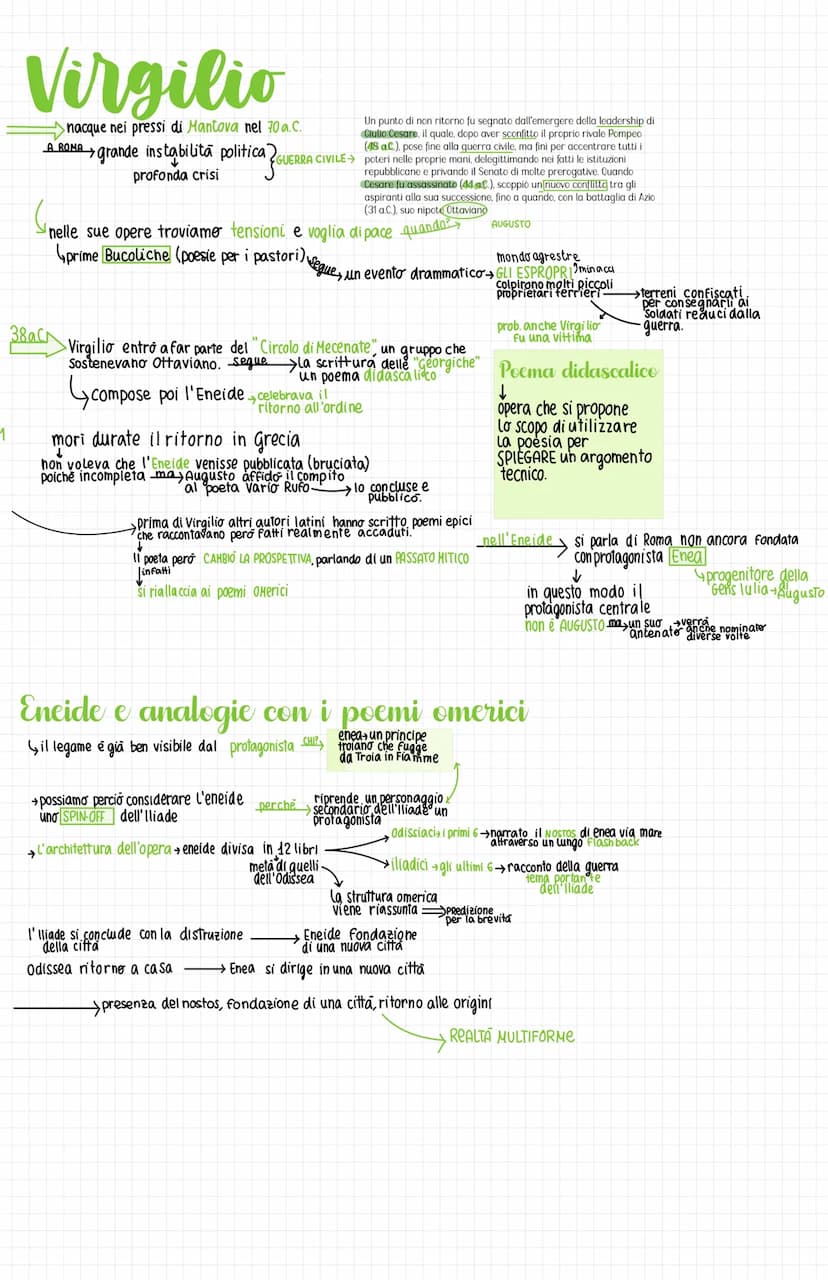 Virgilio
nacque nei pressi di Mantova nel 70 a.C.
A ROMA grande instabilità politica
profonda crisi
GUERRA CIVILE
Un punto di non ritorno fu segnato dall'emergere della leadership di
Giulio Cesare, il quale, dopo aver sconfitto il proprio rivale Pompeo
(48 a.C.), pose fine alla guerra civile, ma finì per accentrare tutti i
poteri nelle proprie mani, delegittimando nei fatti le istituzioni
repubblicane e privando il Senato di molte prerogative. Quando
Cesare fu assassinato (44 a.C.), scoppiò un nuovo conflitto tra gli
aspiranti alla sua successione, fino a quando, con la battaglia di Azio
(31 a.C.), suo nipote Ottaviano
AUGUSTO
nelle sue opere troviamo tensioni e voglia di pace quando?
prime Bucoliche (poesie per i pastori)
segue un evento drammatico
mondo agrestre
GLI ESPROPRI minacci
colpirono molti piccoli
proprietari terrieri
terreni confiscati
per consegnarli ai
soldati reduci dalla
guerra.
prob. anche Virgilio
fu una vittima
38 a.C.
Virgilio entrò a far parte del "Circolo di Mecenate", un gruppo che
sostenevano Ottaviano. segue La scrittura delle "Georgiche"
un poema didascalico
compose poi l'Eneide celebrava il
ritorno all'ordine
Poema didascalico
opera che si propone
lo scopo di utilizzare
la poesia per
SPIEGARE un argomento
tecnico.
morì durate il ritorno in Grecia
non voleva che l'Eneide venisse pubblicata (bruciata)
poichè incompleta ma Augusto affidò il compito
al poeta Vario Rufo lo concluse e
pubblicò.
prima di Virgilio altri autori latini hanno scritto poemi epici
che raccontavano però fatti realmente accaduti.
il poeta però CAMBIÒ LA PROSPETTIVA, parlando di un PASSATO MITICO
infatti
si riallaccia ai poemi OMERICI
nell'Eneide si parla di Roma non ancora fondata
con protagonista Enea
progenitore della
Gens Iulia Augusto
in questo modo il
protagonista centrale
non è AUGUSTO ma un suo
antenato
verrà
anche nominato
diverse volte
Eneide e analogie con i poemi omerici
il legame è già ben visibile dal protagonista CHI?
enea un principe
troiano che fugge
da Troia in fiamme
possiamo perciò considerare l'eneide
uno SPIN-OFF dell'Iliade
perchè riprende un personaggio
secondario dell'Iliade un
protagonista
L'architettura dell'opera eneide divisa in 12 libri
metà di quelli
dell'Odissea
Odissiaci i primi 6 narrato il NOSTOS di enea via mare
attraverso un lungo flashback
iliadici gli ultimi 6 racconto della guerra
tema portante
dell'Iliade
la struttura omerica
viene riassunta PREDIZIONE
per la brevità
l'Iliade si conclude con la distruzione
della città
Eneide fondazione
di una nuova città
Odissea ritorno a casa Enea si dirige in una nuova città
presenza del nostos, fondazione di una città, ritorno alle origini
REALTÀ MULTIFORME